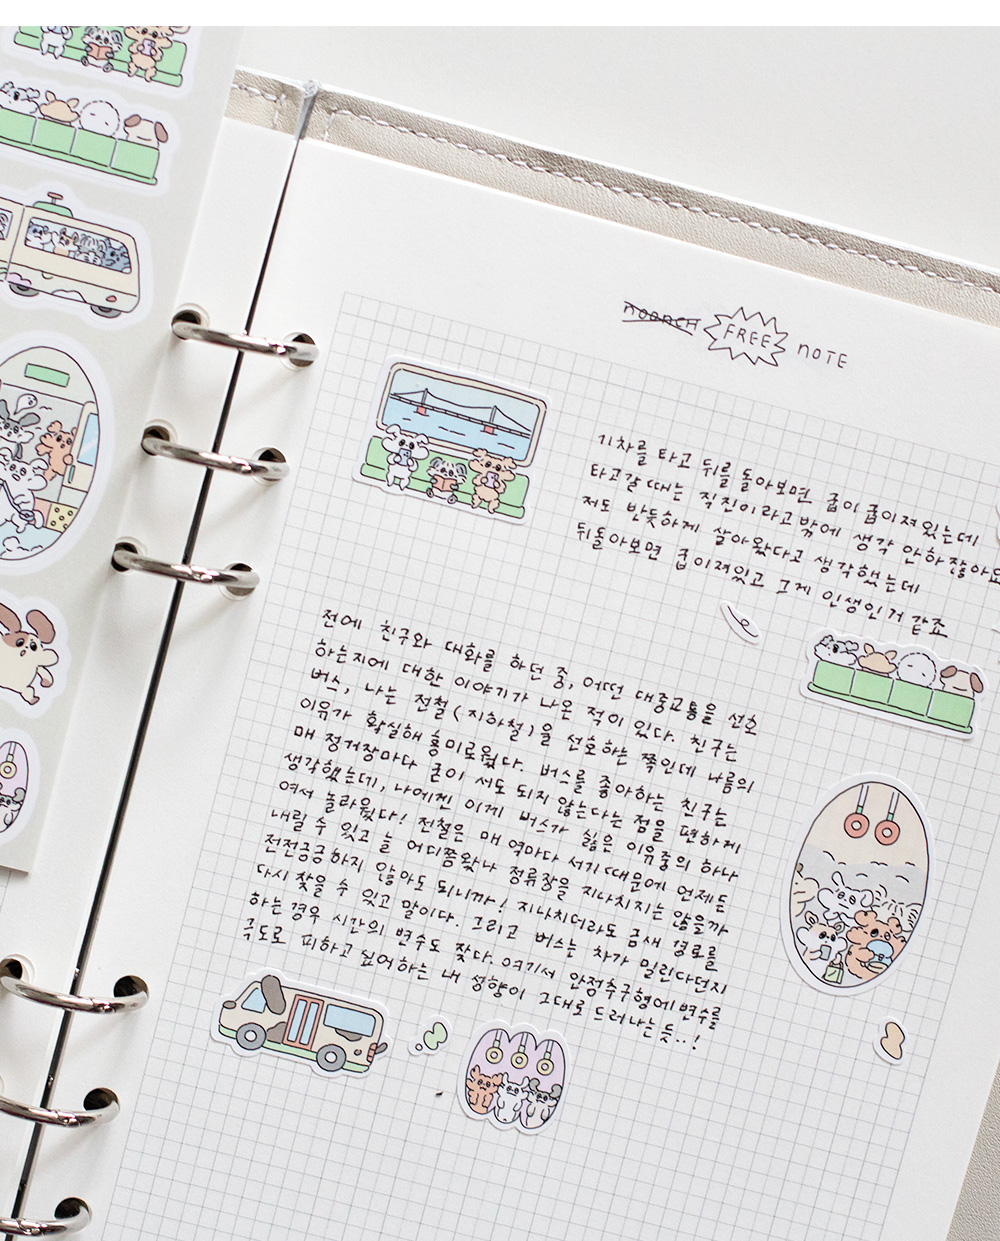 noonch FREE NOTE
기차를 타고 뒤를 돌아보면 굽이 굽이져있는데
타고갈 때는 직진이라고밖에 생각 안하잖아요
저도 반듯하게 살아왔다고 생각했는데
뒤돌아보면 굽이져있고 그게 인생인거 같죠
전에 친구와 대화를 하던 중, 어떤 대중교통을 선호
하는지에 대한 이야기가 나온 적이 있다. 친구는
버스, 나는 전철(지하철)을 선호하는 쪽인데 나름의
이유가 확실해 흥미로웠다. 버스를 좋아하는 친구는
매 정거장마다 굳이 서도 되지 않는다는 점을 편하게
생각했는데, 나에겐 이게 버스가 싫은 이유중의 하나
여서 놀라웠다! 전철은 매 역마다 서기 때문에 언제든
내릴 수 있고 늘 어디쯤왔나 정류장을 지나치지는 않을까
전전긍긍하지 않아도 되니까! 지나치더라도 금새 경로를
다시 찾을 수 있고 말이다. 그리고 버스는 차가 밀린다던지
하는 경우 시간의 변수도 잦다. 여기서 안정추구형에 변수를
극도로 피하고 싶어하는 내 성향이 그대로 드러나는 듯..!